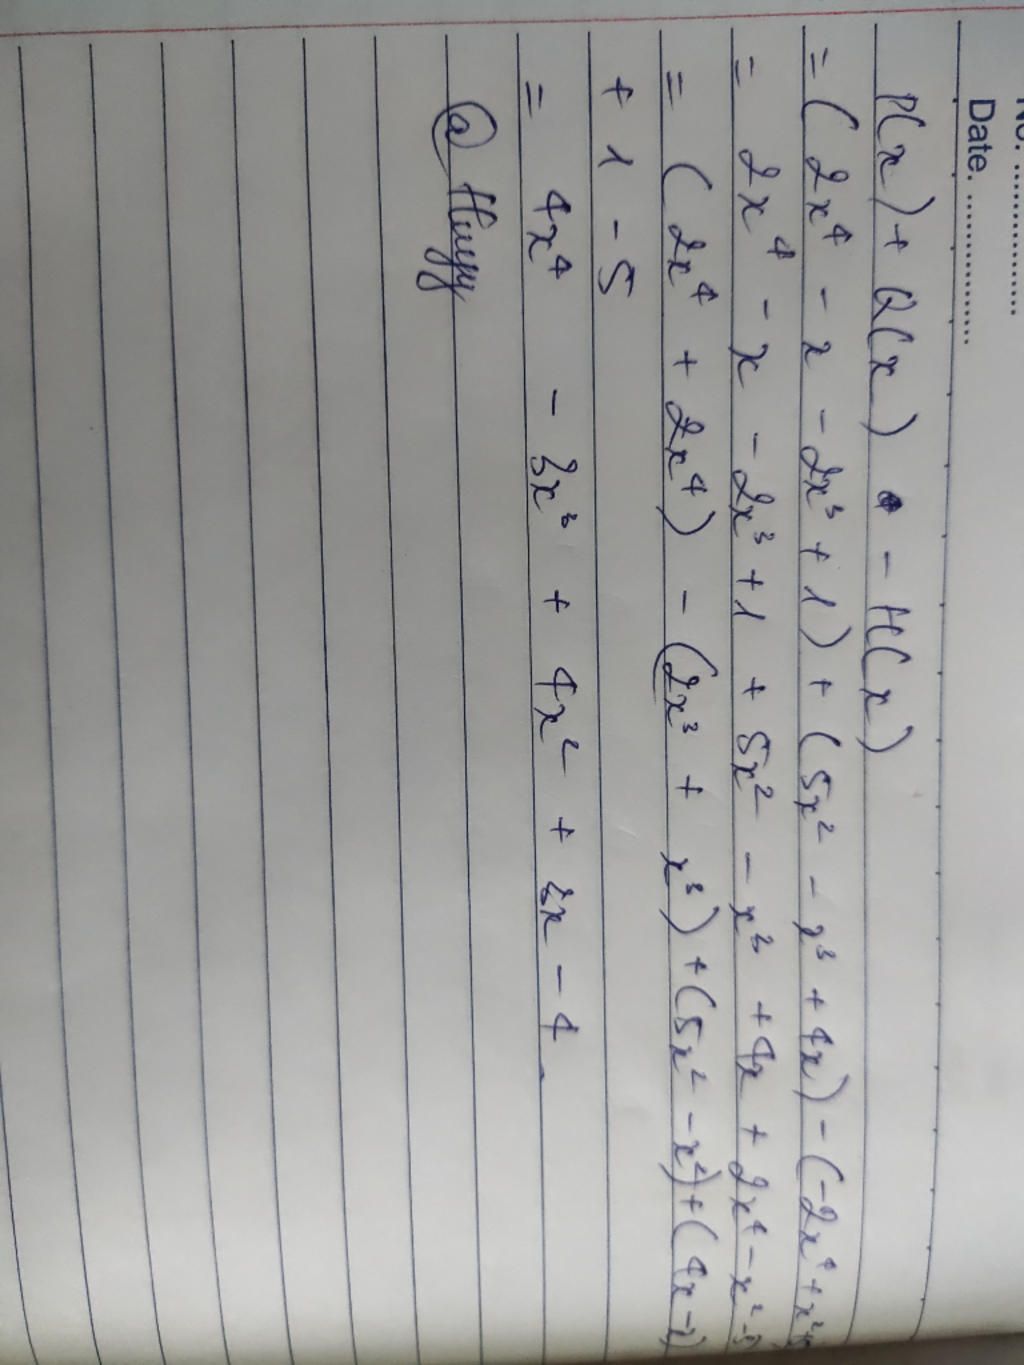 No. ................
Date. ................
P(x) + Q(x) - H(x)
= (2x⁴ - x - 2x³ + 1) + (5x² - x³ + 4x) - (-2x⁴ + x² + 5
= 2x⁴ - x - 2x³ + 1 + 5x² - x³ + 4x + 2x⁴ - x² - 5
= (2x⁴ + 2x⁴) - (2x³ + x³) + (5x² - x²) + (4x - x)
+ 1 - 5
= 4x⁴ - 3x³ + 4x² + 3x - 4.